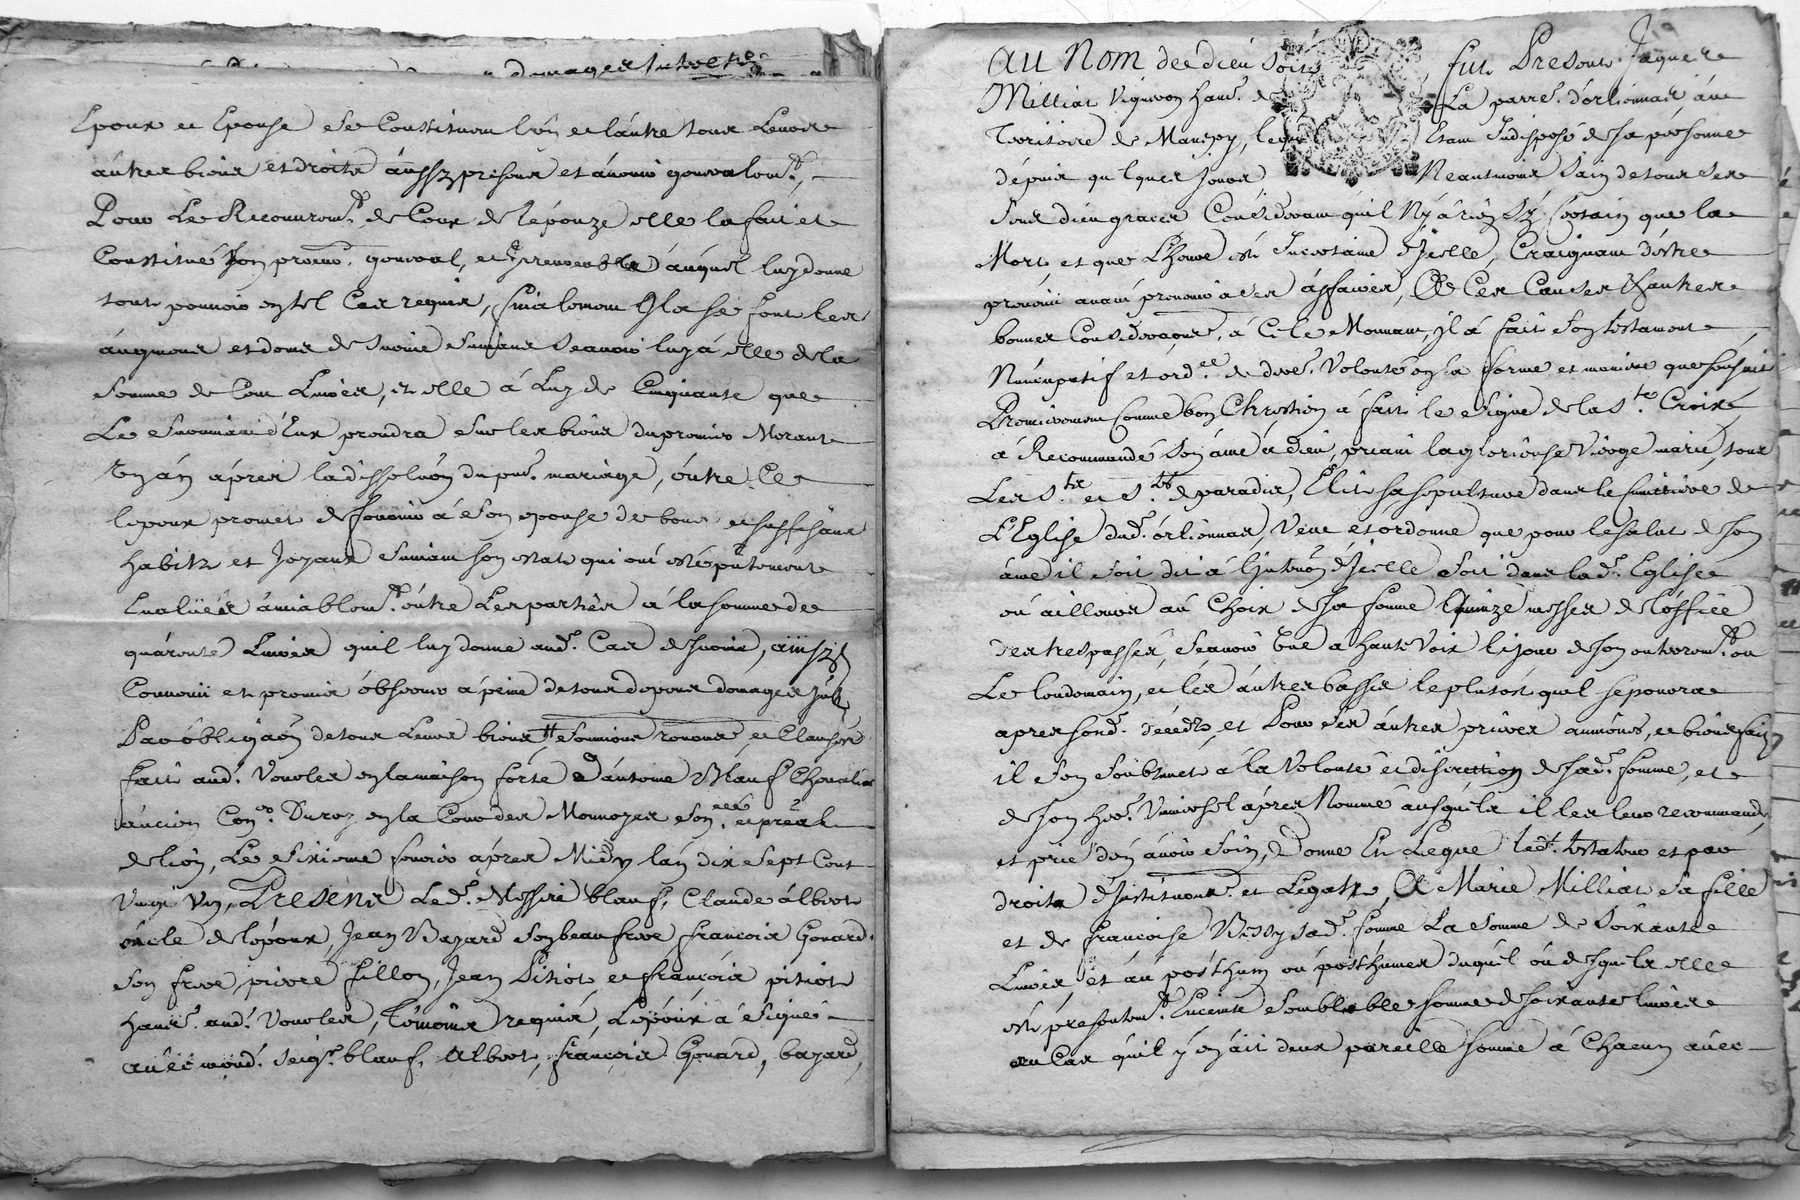 domages Interets
Epoux et Epouse se Constituent l'un et l'autre tous Leurs
autres biens et droits aussy presens et avenir generalemt.,
Pour Le Recouvremt. de Ceux de l'épouze elle la fait et
Constitué son procur. general, et irrevocable auquel luy donne
tout pouvoir en tel Cas requis, finalement se font les
augmens et dons de survie suivans scavoir luy à elle de la
somme de Cent Livres, et elle à Luy de Cinquante que
Le survivant d'Eux prendra sur les biens du premier Mourant
un an aprés la dissolution du pnt. mariage, outre Ce
lepoux promet de fournir à son epouse de bons et suffisans
habitz et Joyaux suivant son estat qui ont esté présentement
Evalüés amiablemt. entre Les parties à la somme de
quarente Livres quil luy donne aud. Cas de survie, ainsy
Convenu et promis observer à peine de tous depens domages
Par obligaõn de tous Leurs biens soumions renons et Clauses
fait aud. Vourles en la maison forte d'antoine Blauf Chevalier
ancien Coner. Du roy en la Cour des Monnoyes Sen.ée et
de lion, Le sixieme fevrier aprés Midy lan dix sept Cent
Vingt Un, Presens Led. Messire blauf, Claude albert
oncle de lépoux, Jean Bazard son beaufrere francois Gonard
son frere, pierre fillon, Jean Pitiot et françois pitiot
habit. aud. Vourles, Témoins requis, L'epoux a signé
avec mond. seigr. blauf, albert, françois Gonard, bazard,
Au Nom de dieu soit , fut Present Jaques
Milliat Vigneron habt. de La parre. d'orlienas, au
Territoire de Maupy, lequel Etant Indisposé de sa personne
depuis quelques Jours Neantmoins Sain de tous ses
sens dieu graces Considerant quil Ny à rien Sy Certain que la
Mort et que L'heure est Incertaine d'Icelle, Craignant d'estre
prevenu avant pourvoir à ses affaires, De Ces Causes & autres
bonnes Considerations, à Ce le Mouvant, il à fait son testament
Nuncupatif et ordre. de dere. Volonté en la forme et maniere que sensuit
Premierement Comme bon Chrestien à fait le signe de la Ste. Croix
à Recommandé son ame à dieu, priant la glorieuse Vierge marie, tous
Les Sts. et Stes. de paradis, Elit sa sepulture dans le Cimetiere de
L'Eglise dud. orlienas, Veut et ordonne que pour le salut de son
ame il soit dit à l'intention d'Icelle soit dans lad. Eglise
ou ailleurs au Choix de sa femme quinze messes de l'office
des trespassés, scavoir une a haute Voix le jour de son enterremt. ou
Le lendemain, et les autres basses le plutost quil se pourra
apres sond. décéds, et Pour ses autres prieres aumônes, et bienfaits
il s'en soubmet à la Volonté et discrettion de sad. femme, et
de son her. Universel après Nommé ausquels il les leur recommande
et prie d'en avoir soin, Donne Et Legue led. testateur et par
droits d'Institution et Legats, A Marie Milliat sa fille
et de francoise Bessy sad. femme La somme de soixante
Livres, et au posthum ou posthumes duquel ou desquels elle
est presentemt. Enceinte semblable somme de soixante livres
au Cas qu'il y en ait deux pareille somme à Chacun avec